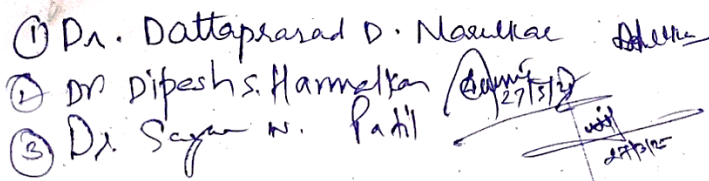 ① Dr. Dattaprasad D. Narulkar
② Dr Dipesh S. Harmalkar 27/3/25
③ Dr. Sagar N. Patil
27/3/25